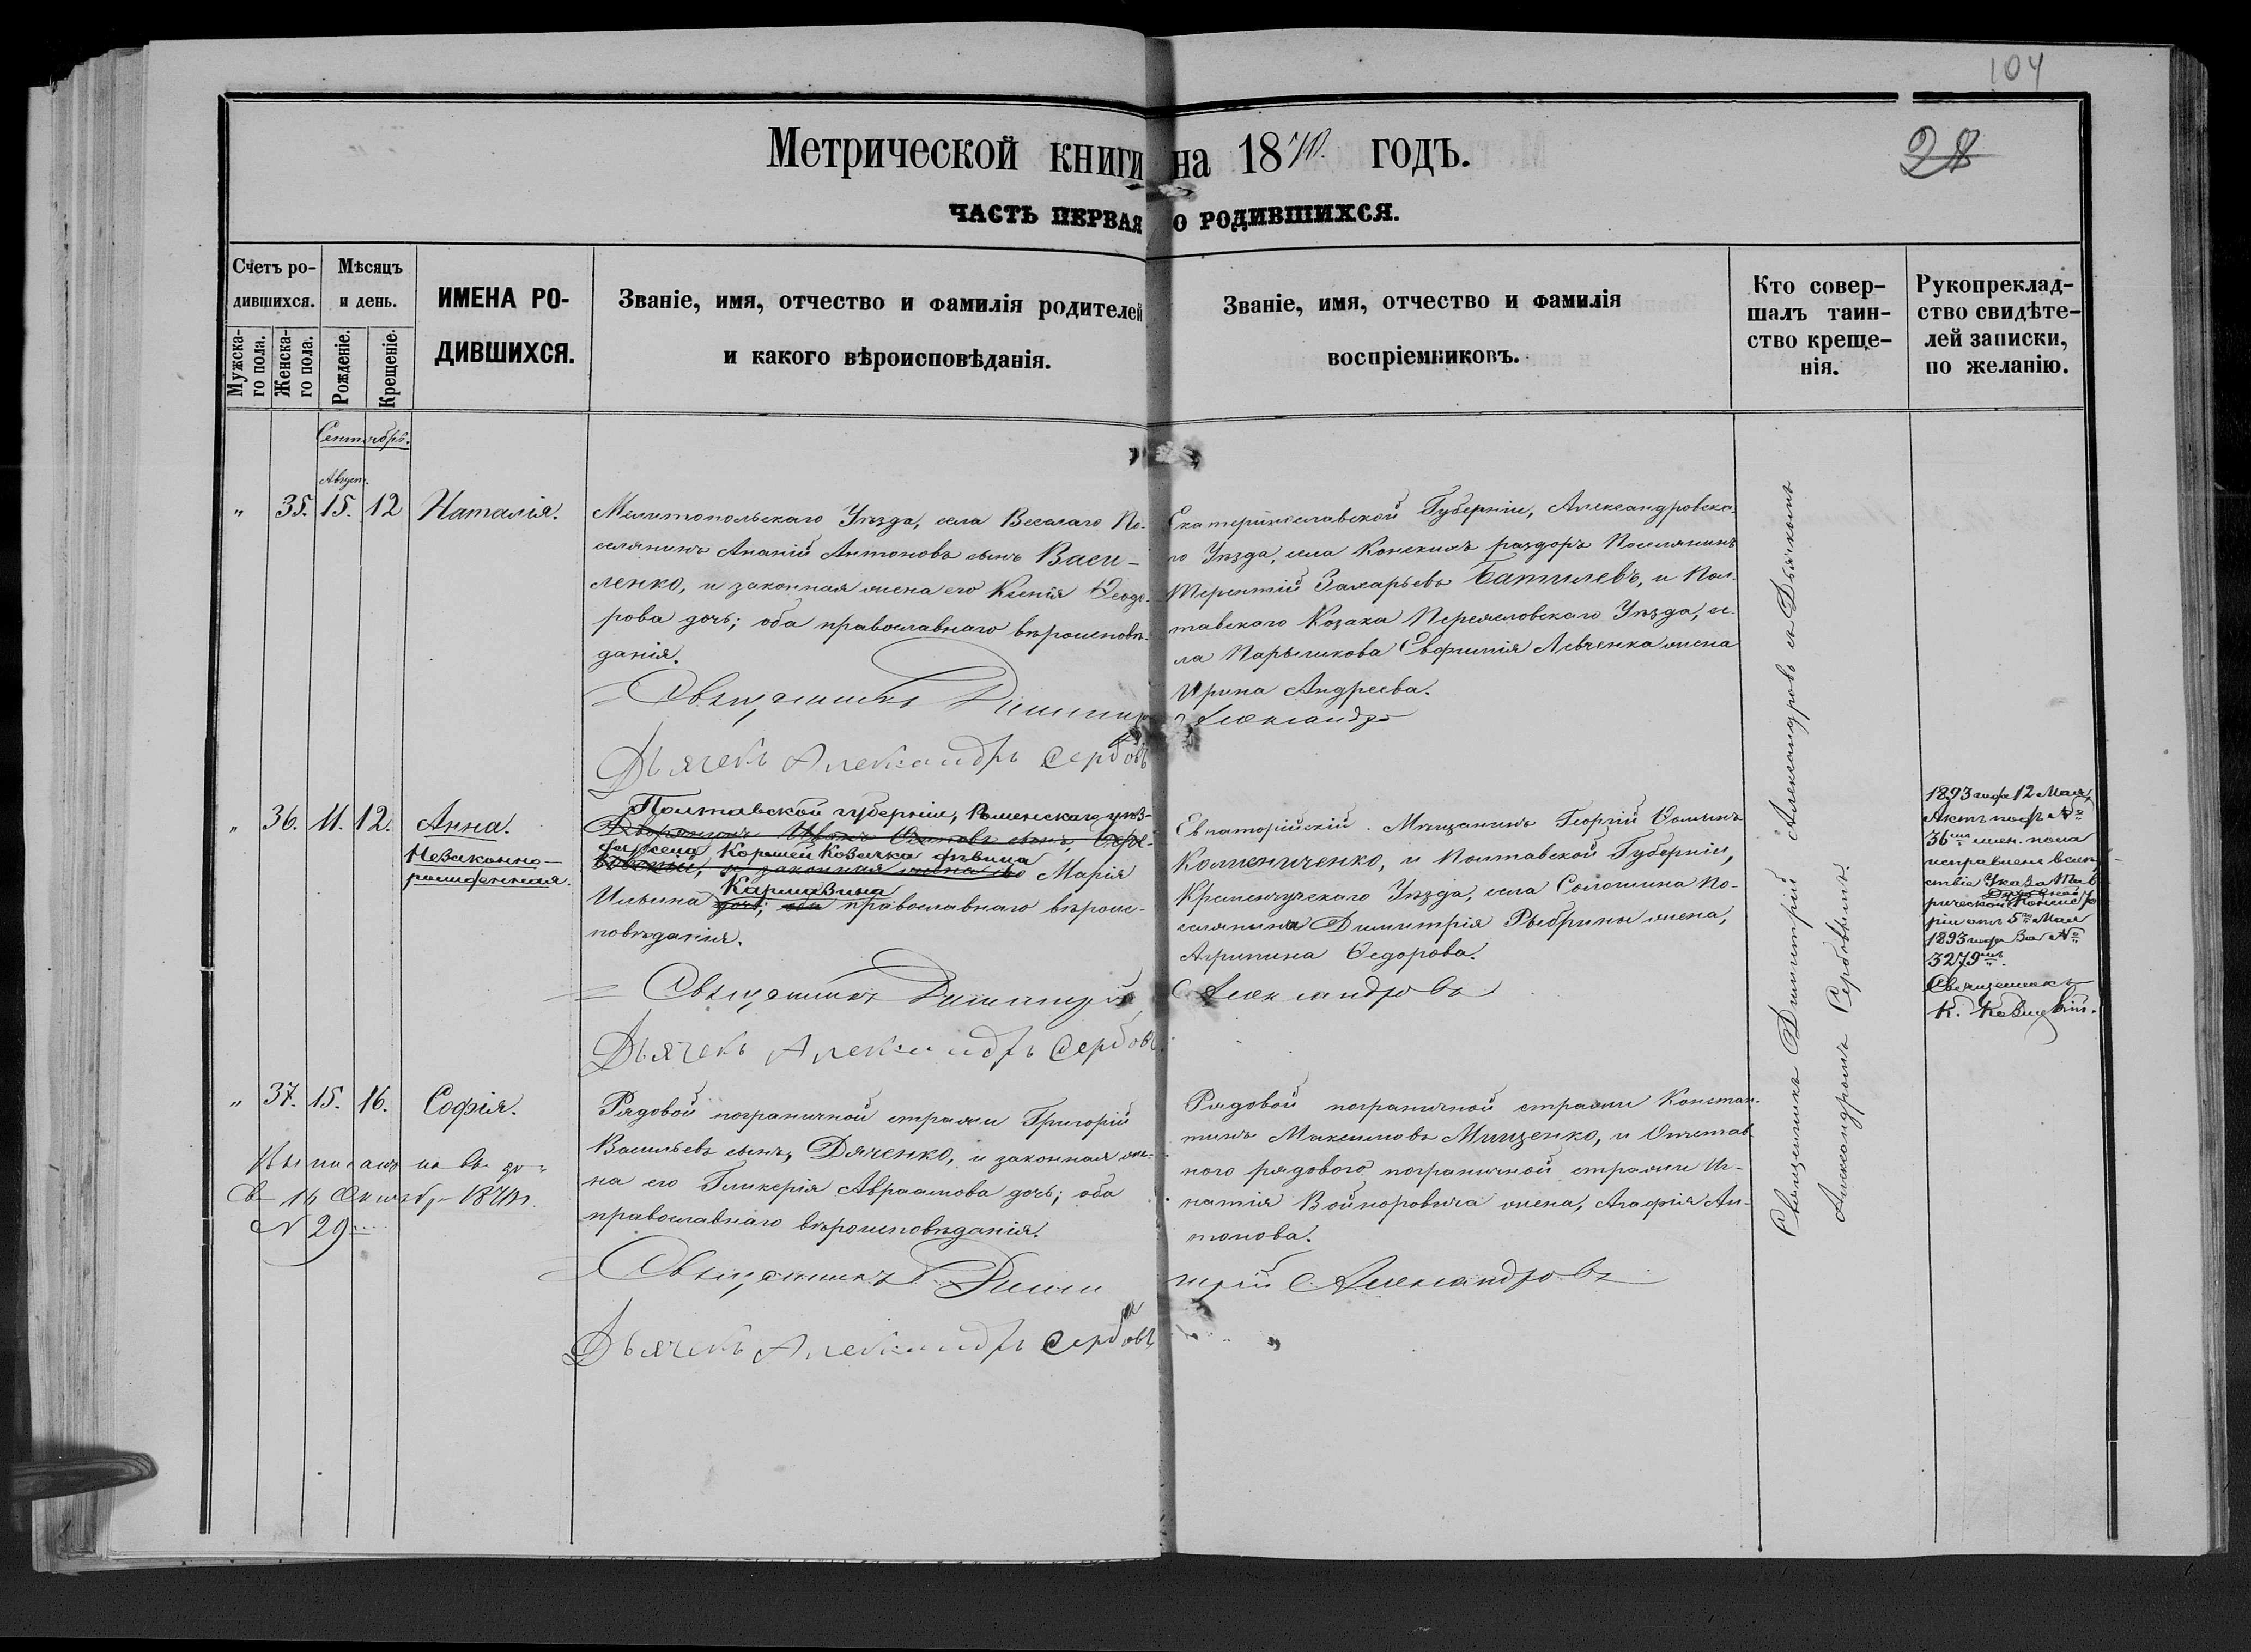 104
28
Метрической книги на 1870. годъ.
ЧАСТЬ ПЕРВАЯ О РОДИВШИХСЯ.
Счетъ ро-
дившихся.
Мужска-
го пола.
Женска-
го пола.
Мѣсяцъ
и день.
Рожденіе.
Крещеніе.
ИМЕНА РО-
ДИВШИХСЯ.
Званіе, имя, отчество и фамилія родителей
и какого вѣроисповѣданія.
Званіе, имя, отчество и фамилія
воспріемниковъ.
Кто совер-
шалъ таин-
ство креще-
нія.
Рукопреклад-
ство свидѣте-
лей записки,
по желанію.
Сентябрь.
Август.
" 35. 15. 12 Наталія.
Мелитопольскаго Уѣзда, села Веселаго По-
селянинъ Ананій Антоновъ сынъ Васи-
ленко, и законная жена его Ксенія Ѳеодо-
рова дочь; оба православнаго вѣроисповѣ-
данія.
Священникъ Димитр
Дьячекъ Александръ Сербовъ
Екатеринославской Губерніи, Александровска-
го Уѣзда, села Конскихъ раздоръ Поселянинъ
Терентій Захарьевъ Батилевъ, и Пол-
тавскаго Козака Переяславскаго Уѣзда, се-
ла Парышкова Евфимія Левченка жена
Ирина Андреева.
Александро
" 36. 11. 12. Анна.
Незаконно-
рожденная.
Полтавской губерніи, Роменскаго уѣз-
Дворянинъ Иванъ сынъ,
козачка дѣвица
и законная жена его Марія
Кармазина
Ильина дочь; оба православнаго вѣроис-
повѣданія.
Священникъ Димитрій
Дьячекъ Александръ Сербовъ.
Евпаторійскій Мѣщанинъ Георгій Ѳоминъ
Колиениченко, и Полтавской Губерніи,
Кременчугскаго Уѣзда, села Солошина По-
селянина Димитрія Рыбрины жена,
Агрипина Ѳедорова.
Александровъ
1893 года 12 Мая,
Актъ подъ №
36 жен. пола
исправленъ вслѣд
ствіе Указа Тав
Духовной
рической Консисто
ріи отъ 5 Мая
1893 года за №
3279
Священникъ
К.
" 37. 15. 16. Софія.
Рядовой пограничной стражи Григорій
Васильевъ сынъ, Дяченко, и законная же-
на его Гликерія Авраамова дочь; оба
православнаго вѣроисповѣданія.
Священникъ Дими
Дьячекъ Александръ Сербовъ
Рядовой пограничной стражи Констан-
тинъ Максимовъ Мищенко, и Отстав-
ного рядового пограничной стражи Иг-
натія Войноровича жена, Агафія Ан-
тонова.
трій Александровъ
16 Октября 1870г.
№ 29
Священникъ Димитрій Александровъ съ Дьячкомъ
Александромъ Сербовымъ.